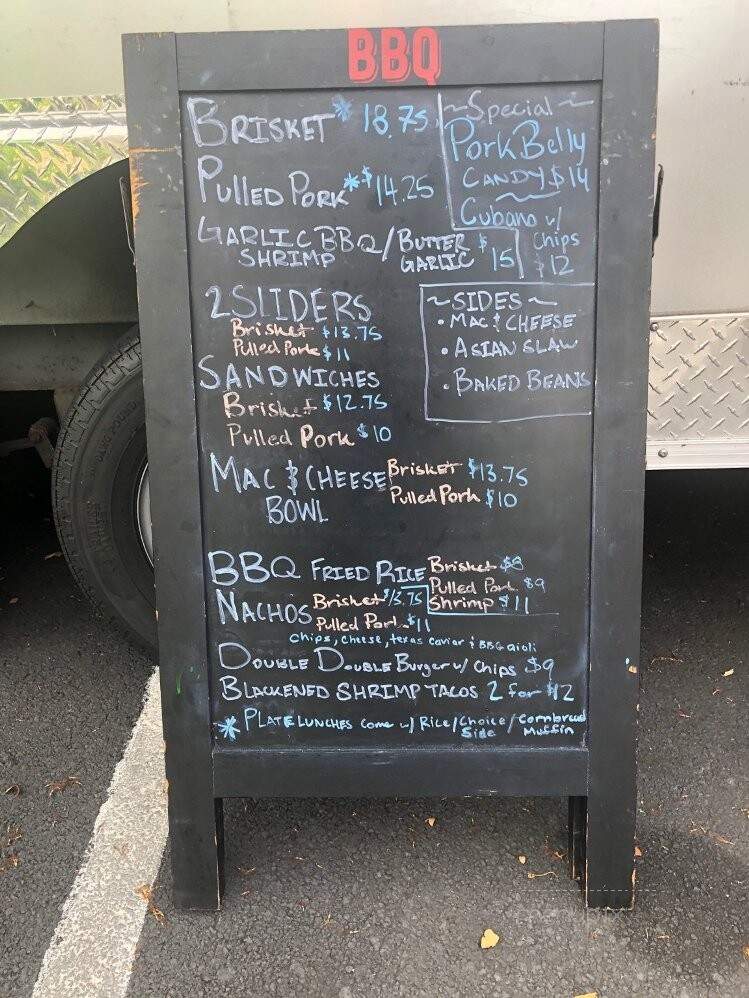 BBQ
BRISKET* 18.75
PULLED PORK* $14.25
GARLIC BBQ / BUTTER
SHRIMP GARLIC $15
~Special~
Pork Belly
CANDY $14
Cubano w/
Chips
$12
2 SLIDERS
Brisket $13.75
Pulled Pork $11
~SIDES~
• MAC & CHEESE
• ASIAN SLAW
• BAKED BEANS
SANDWICHES
Brisket $12.75
Pulled Pork $10
MAC & CHEESE
BOWL
Brisket $13.75
Pulled Pork $10
BBQ FRIED RICE
Brisket $8
Pulled Pork $9
Shrimp $11
NACHOS Brisket $13.75
Pulled Pork $11
chips, cheese, texas caviar & BBQ aioli
DOUBLE DOUBLE Burger w/ Chips $9
BLACKENED SHRIMP TACOS 2 for $12
* PLATE LUNCHES come w/ Rice/Choice/Cornbread
Side Muffin